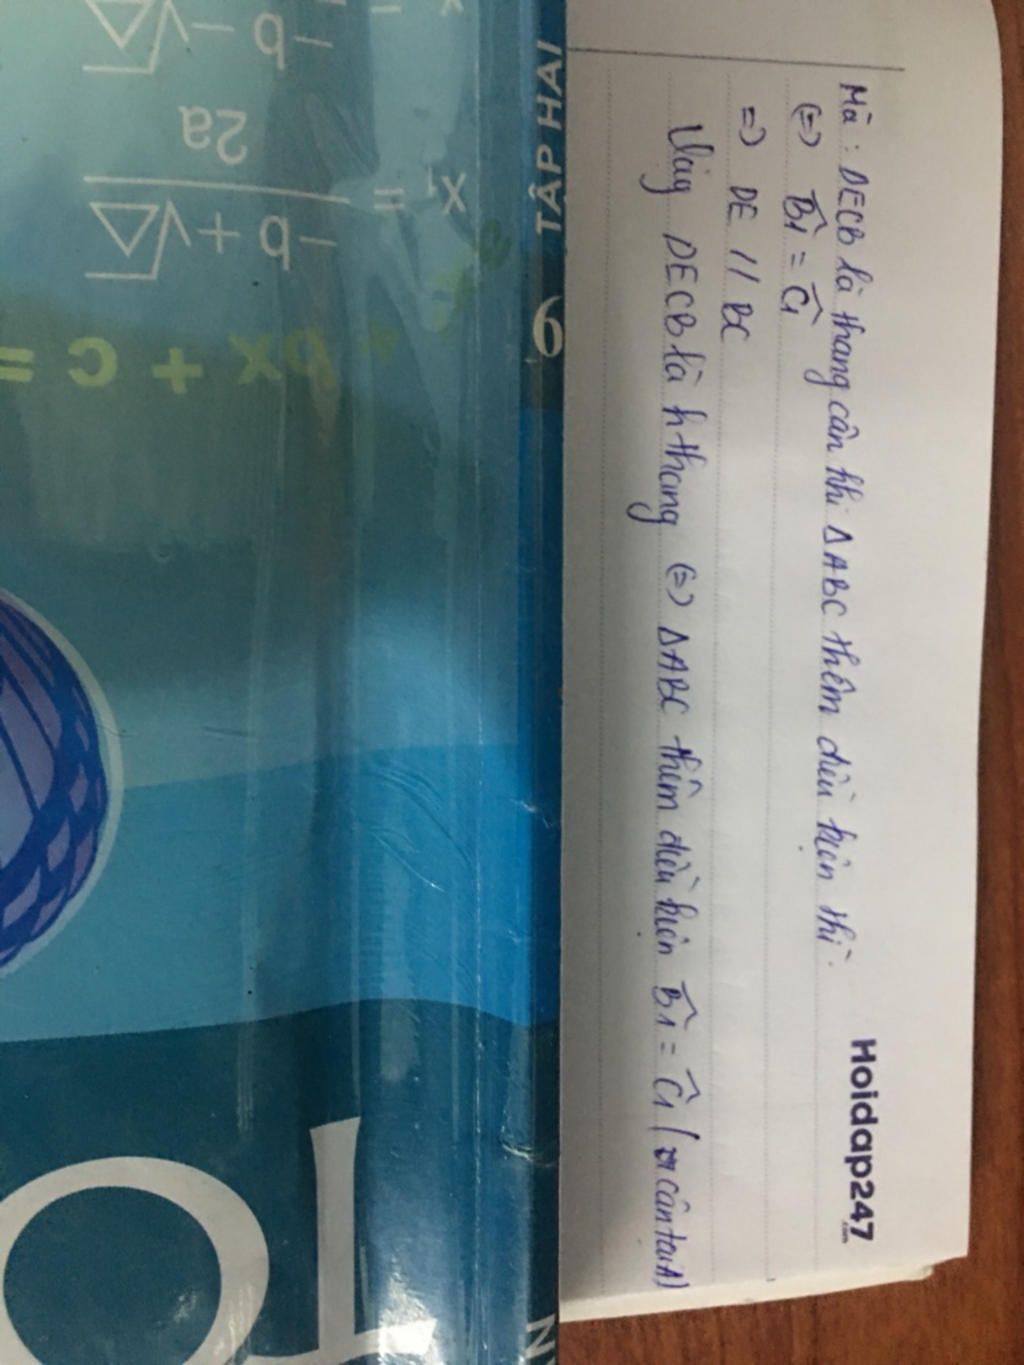 Hoidap247
.com
Mà : DECB là thang cân khi ΔABC thêm điều kiện thì.
(=) B̂1 = Ĉ1
=) DE // BC
Vậy DECB là h thang (=) ΔABC thêm điều kiện B̂1 = Ĉ1 ( cân tại A)
TẬP HAI
9
N
TO
bx + c =
x1 = -b + √Δ
2a
-b - √Δ